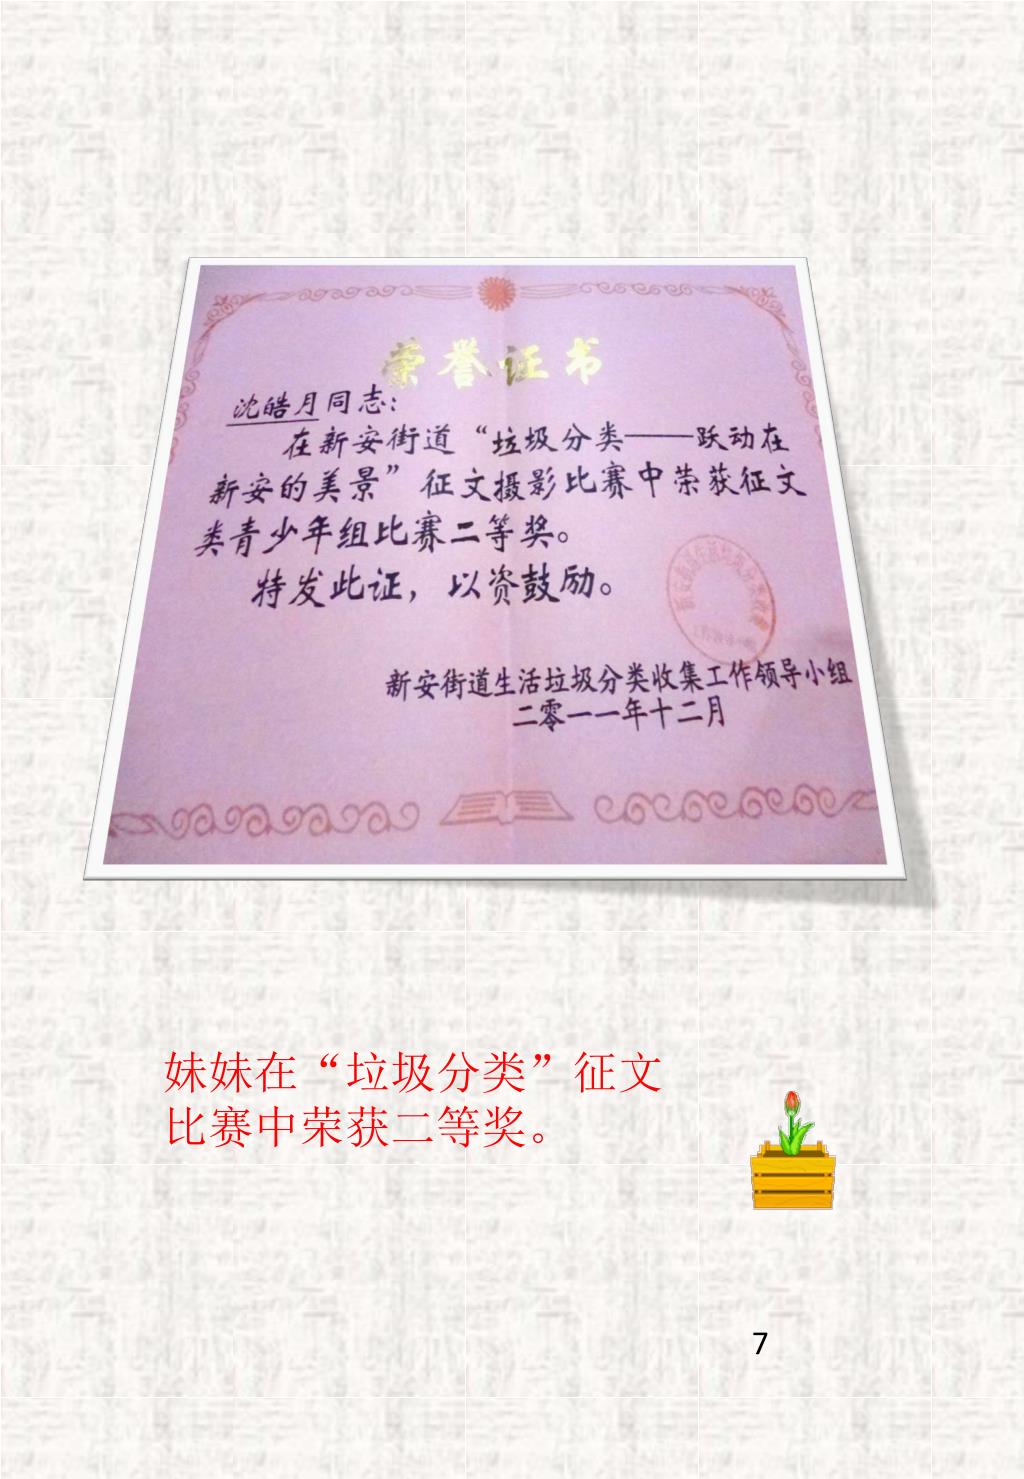 荣誉证书
沈皓月同志：
在新安街道“垃圾分类——跃动在
新安的美景”征文摄影比赛中荣获征文
类青少年组比赛二等奖。
特发此证，以资鼓励。
新安街道生活垃圾分类收集工作领导小组
二零一一年十二月
妹妹在“垃圾分类”征文
比赛中荣获二等奖。
7